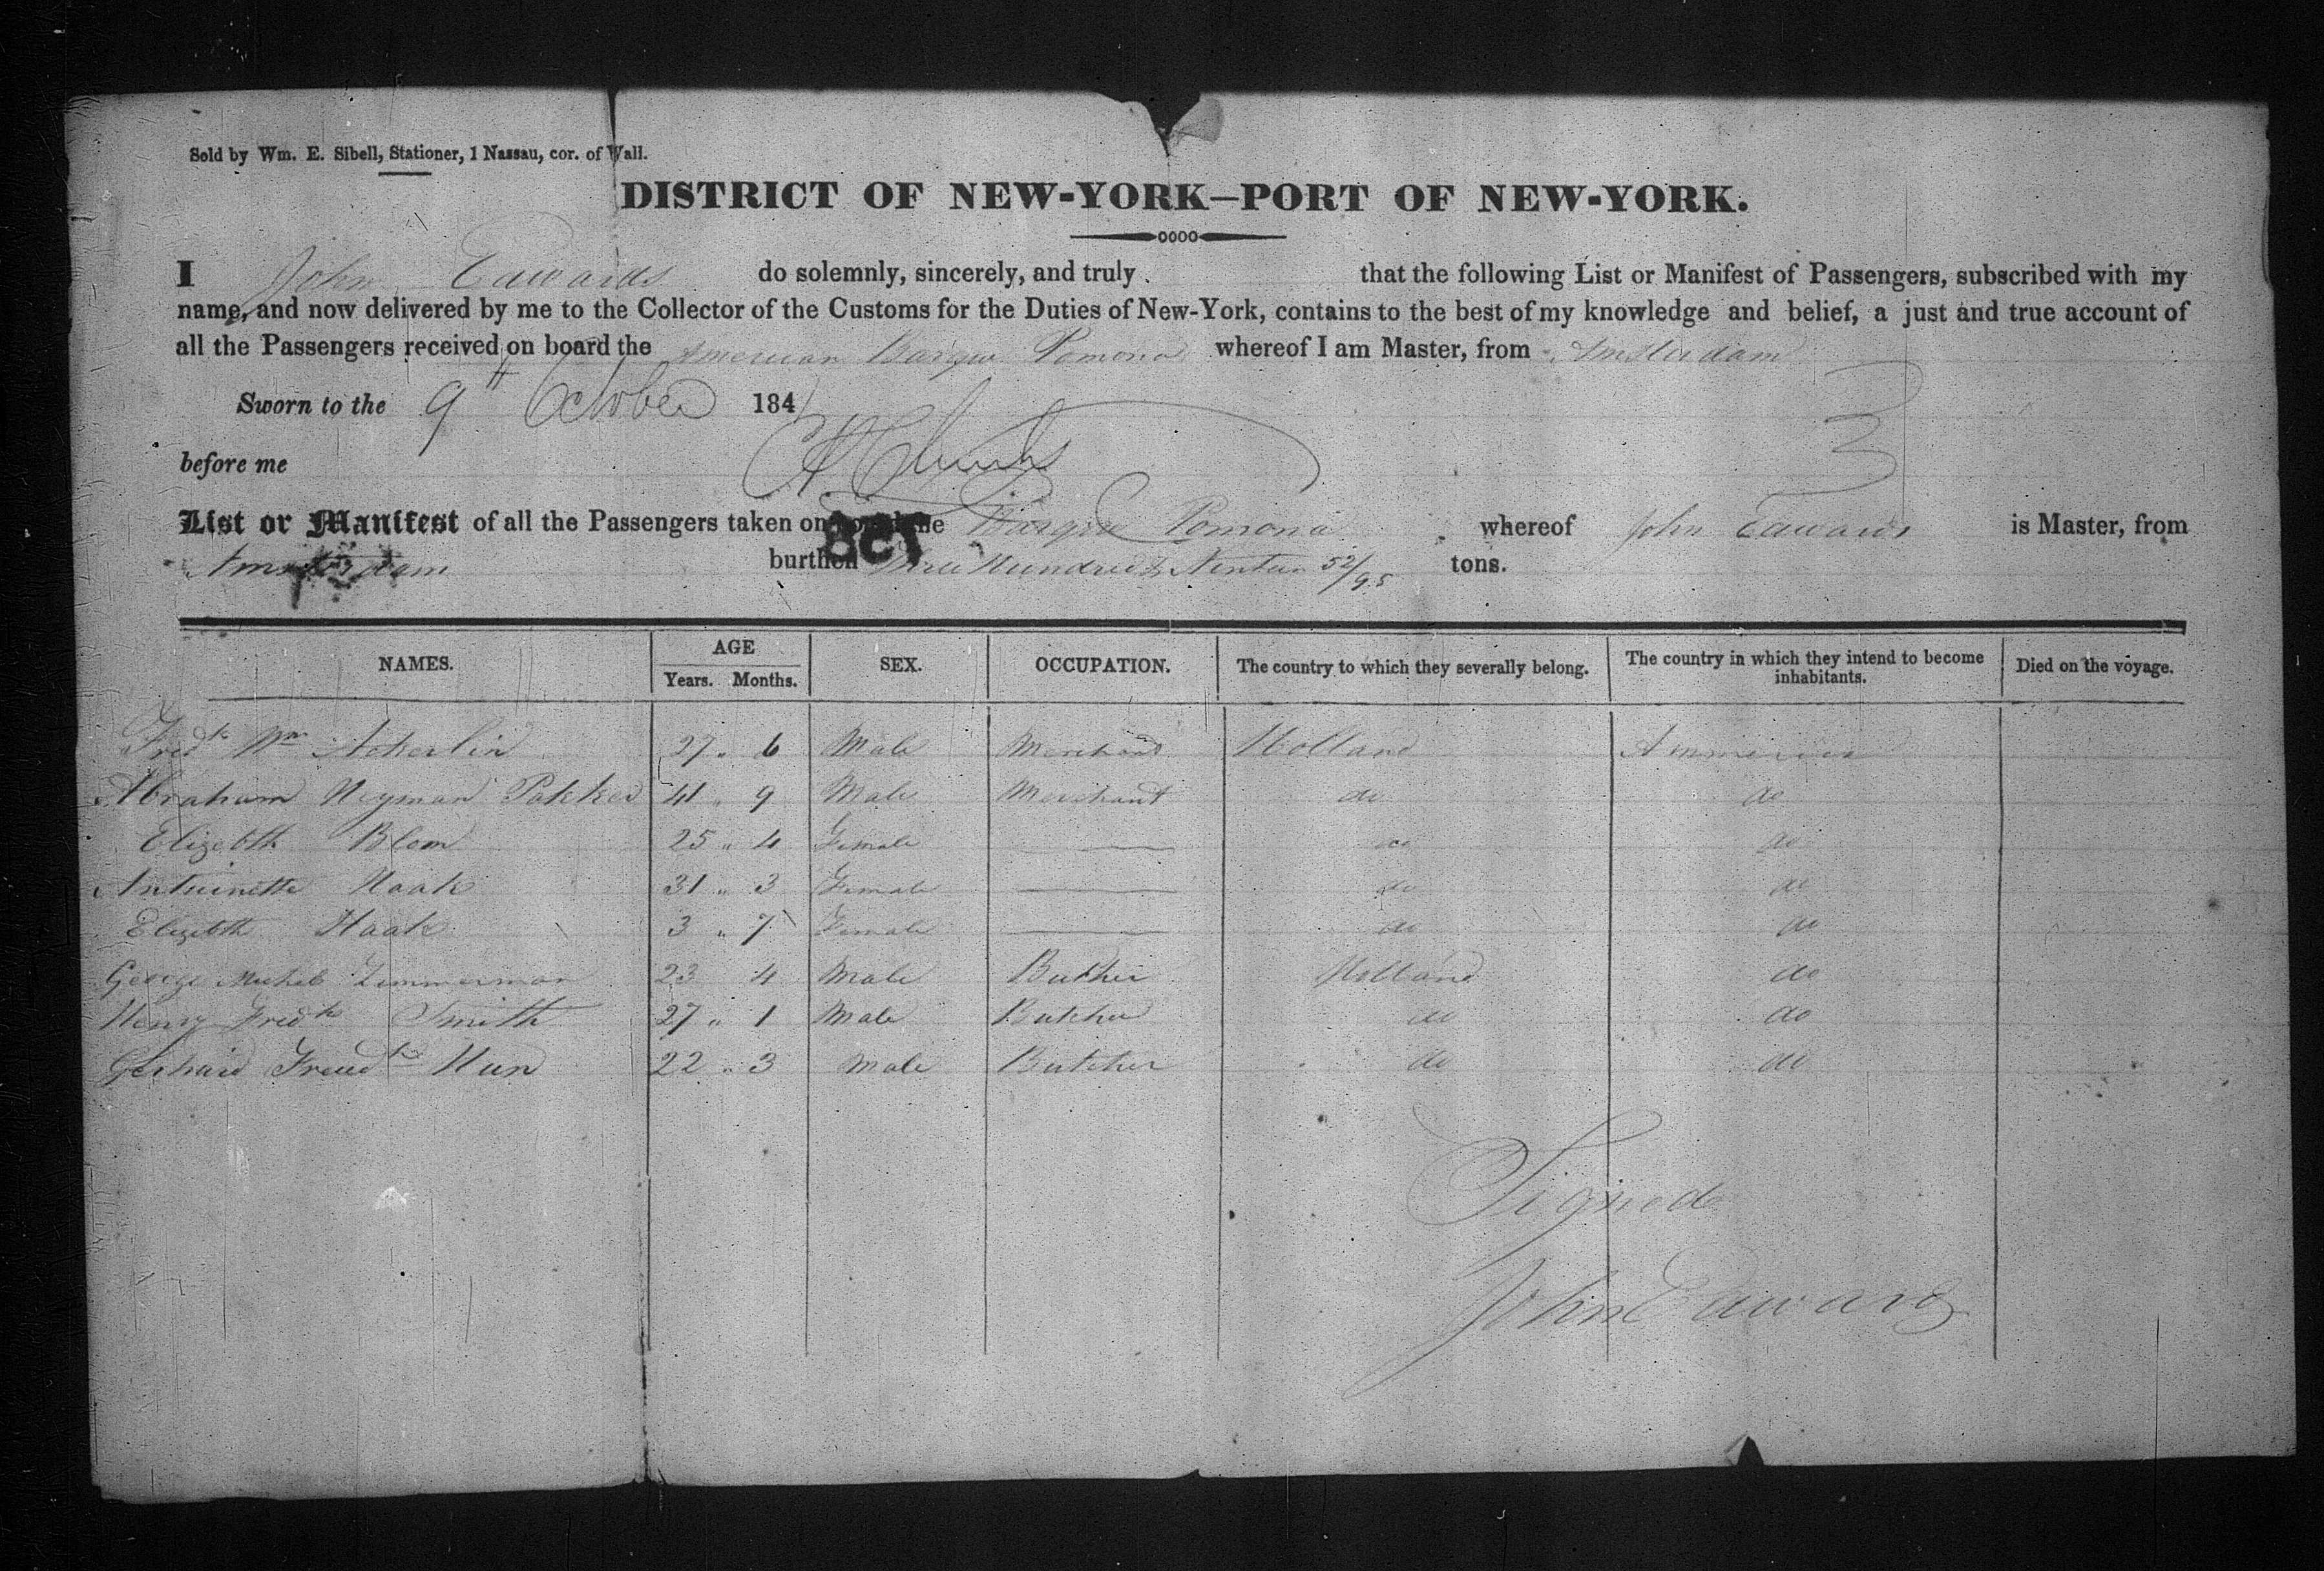 Sold by Wm. E. Sibell, Stationer, 1 Nassau, cor. of Wall.
DISTRICT OF NEW-YORK—PORT OF NEW-YORK.
I John Edwards do solemnly, sincerely, and truly that the following List or Manifest of Passengers, subscribed with my
name, and now delivered by me to the Collector of the Customs for the Duties of New-York, contains to the best of my knowledge and belief, a just and true account of
all the Passengers received on board the American Barque Pomona whereof I am Master, from Amsterdam
Sworn to the 9th October 184
before me
3
List or Manifest of all the Passengers taken on board the Barque Pomona whereof John Edwards is Master, from
Amsterdam burthen Three Hundred & Ninteen 52/95 tons.
OCT
NAMES. AGE SEX. OCCUPATION. The country to which they severally belong. The country in which they intend to become inhabitants. Died on the voyage.
Years. Months.
Fredk Wm Ackerlin 27 " 6 Male Merchant Holland Ammerica
Abraham Heyman Pakker 41 " 9 Male Merchant do do
Elizebth Blom 25 " 4 Female — do do
Antuinette Haak 31 " 3 Female — do do
Elizebth Haak 3 " 7 Female — do do
George Michel Zimmerman 23 4 Male Buther Holland do
Henry Fredk Smith 27 " 1 Male Butcher do do
Gerhard Freudk Hun 22 " 3 Male Butcher do do
Signed
John Edwards